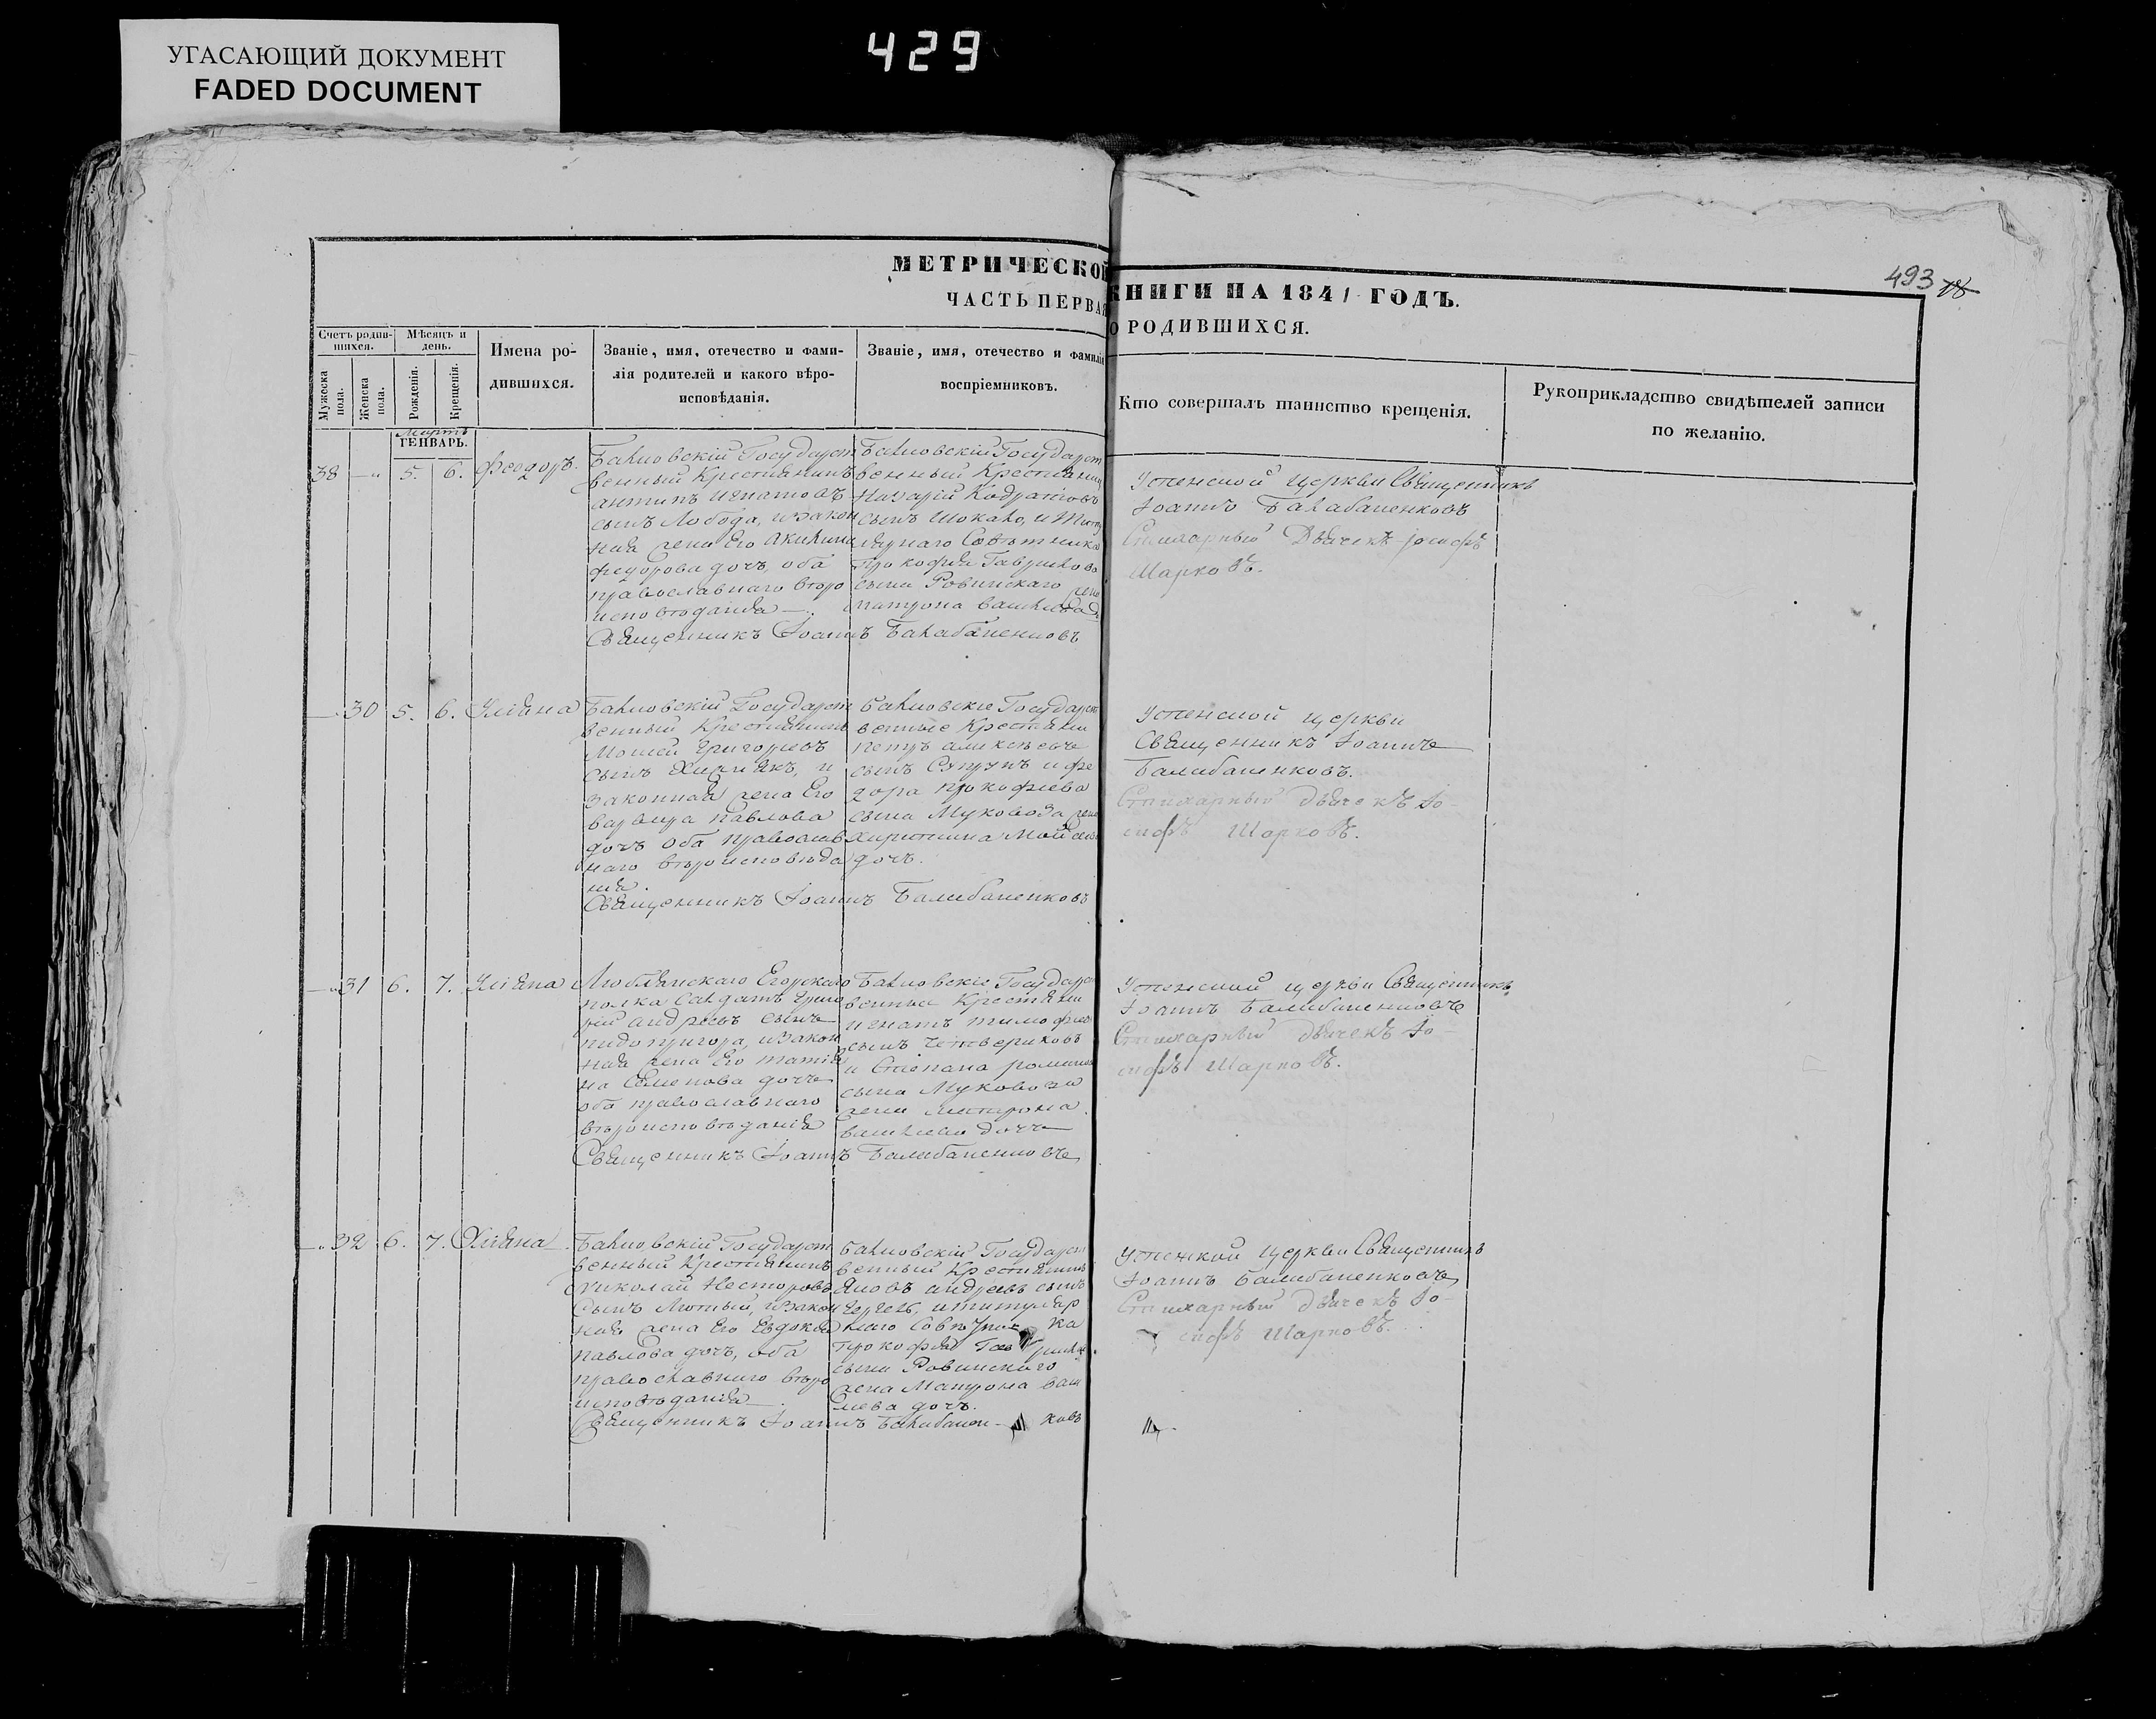 УГАСАЮЩИЙ ДОКУМЕНТ
FADED DOCUMENT
429
493 18
МЕТРИЧЕСКОЙ КНИГИ НА 1841 ГОДЪ.
ЧАСТЬ ПЕРВАЯ О РОДИВШИХСЯ.
Счетъ родив-
шихся.
Мужеска
пола.
Женска
пола.
Мѣсяцъ и
день.
Рожденія.
Крещенія.
Имена ро-
дившихся.
Званіе, имя, отечество и фами-
лія родителей и какого вѣро-
исповѣданія.
Званіе, имя, отечество и фамилія
воспріемниковъ.
Кто совершалъ таинство крещенія.
Рукоприкладство свидѣтелей записи
по желанію.
Мартъ
ГЕНВАРЬ.
38 5. 6. Феодоръ.
Государст
венный Крестьянинъ
антипъ игнатовъ
сынъ Лобода, и закон
ная жена Его Акилина
федорова дочь, оба
православнаго вѣро
исповѣданія
Государст
венный Крестьянин
сынъ Шокало, и Титу
лярнаго Совѣтника
Прокофія Гаврилова
сына Ровинскаго жена
Священникъ Іоаннъ
Успенской Церкви Священникъ
Іоаннъ
Стихарный Дьячекъ Іосифъ
Шарковъ.
30 5. 6. Уліана
Государст
венный Крестьянинъ
Мойсей Григорьевъ
сынъ и
законная жена Его
варвара Павлова
дочь оба православ
наго вѣроисповѣда
нія.
Государст
венные Крестьяни
петръ алексѣевъ
сынъ Супрунъ и фе
дора прокофіева
сына Муковоза жена
дочь.
Священникъ Іоаннъ
Успенской церкви
Священникъ Іоаннъ
Стихарный дьячекъ Іо-
сифъ Шарковъ.
31 6. 7. Уліана
Егорскаго
полка Салдатъ Григо
рій андреевъ сынъ
пидопригора, и закон
ная жена Его татія
на Семенова дочь
оба православнаго
вѣроисповѣданія
Государст
венные Крестьяни
игнатъ тимофеев
сынъ Четвериковъ
и Степана романова
сына Муковоза
жена матрона
василіева дочь
Священникъ Іоаннъ
Успенской церкви Священникъ
Іоаннъ
Стихарный дьячекъ Іо-
сифъ Шарковъ.
32 6. 7. Уліана
Государст
венный Крестьянинъ
Николай Несторовъ
Сынъ Лютый, и закон
ная жена Его Евдокія
павлова дочь, оба
православнаго вѣро
исповѣданія
Государст
венный Крестьянинъ
Яковъ андреевъ сынъ
и титуляр
наго Совѣтника
прокофія Гаврила
сына Ровинскаго
жена Матрона васи
лиева дочь.
Священникъ Іоаннъ
Успенской Церкви Священникъ
Іоаннъ
Стихарный дьячекъ Іо-
сифъ Шарковъ.